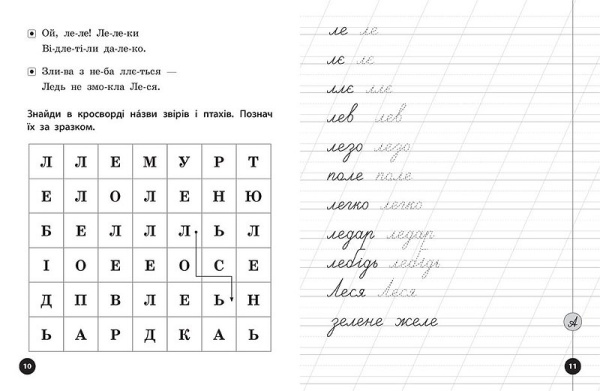 Ой, ле-ле! Ле-ле-ки
Ві-дле-ті-ли да-ле-ко.
Зли-ва з не-ба ллє-ться —
Ледь не змо-кла Ле-ся.
Знайди в кросворді назви звірів і птахів. Познач
їх за зразком.
Л Л Е М У Р Т
Е Л О Л Е Н Ю
Б Е Л Л Л Ь Л
І О Е Е О С Е
Д П В Л Е Ь Н
Ь А Р Д К А Ь
10
ле ле
лє лє
ллє ллє
лев лев
лезо лезо
поле поле
легко легко
ледар ледар
лебідь лебідь
Леся Леся
зелене желе
А
11